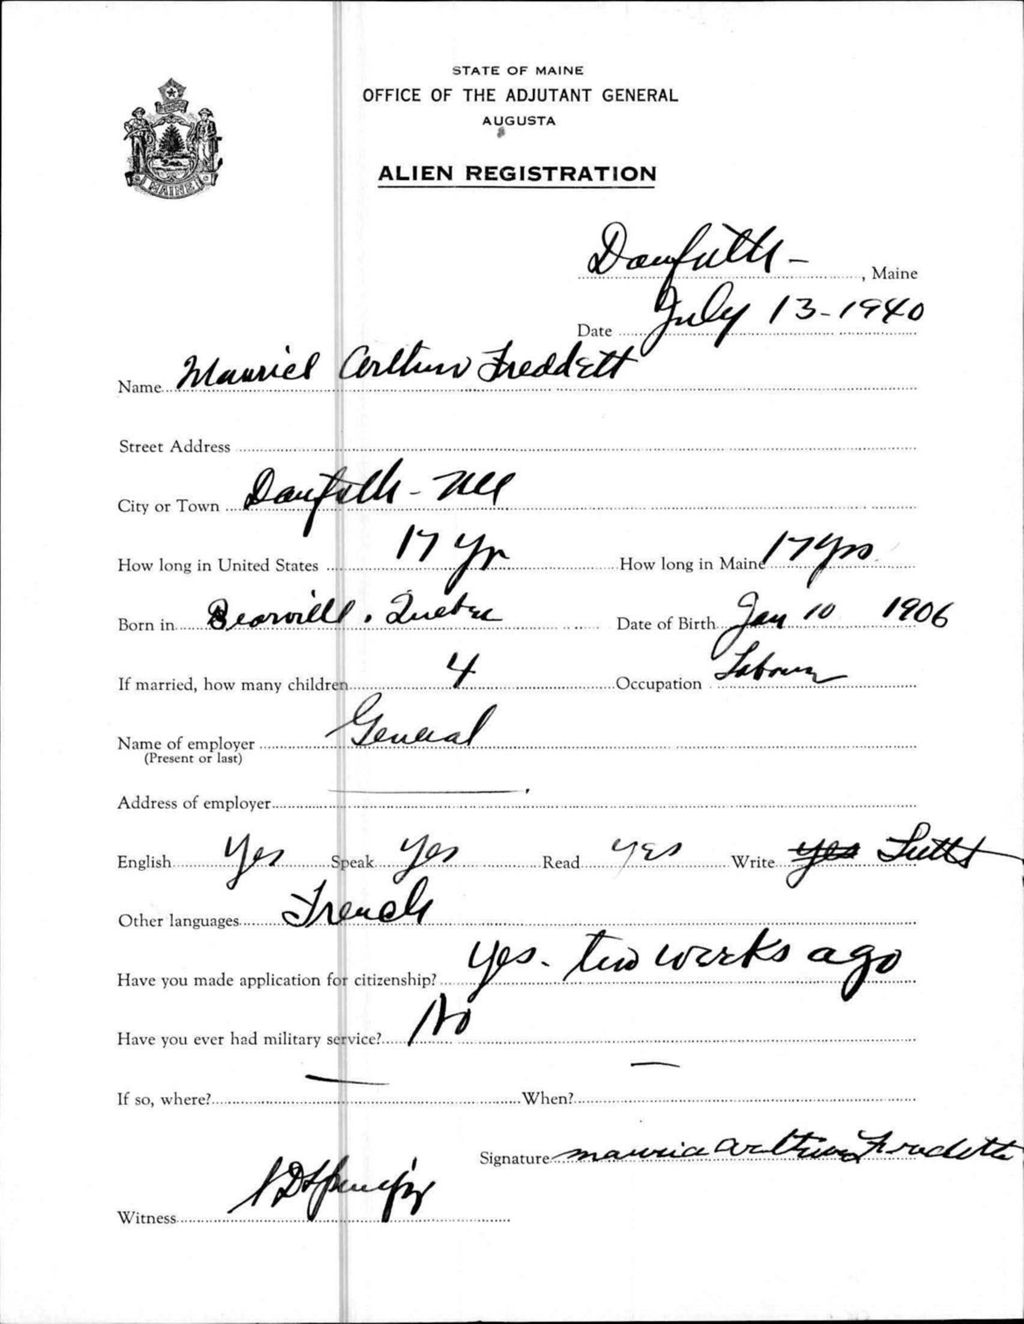 STATE OF MAINE
OFFICE OF THE ADJUTANT GENERAL
AUGUSTA
MAINE
ALIEN REGISTRATION
Danforth - , Maine
Date July 13 - 1940
Name Mauriel Arthur Freddett
Street Address
City or Town Danforth - Me
How long in United States 17 yr How long in Maine 17 yrs
Born in Quebec Date of Birth Jan 10 1906
If married, how many children 4 Occupation Labourer
Name of employer General
(Present or last)
Address of employer
English Yes Speak Yes Read Yes Write Yes
Other languages French
Have you made application for citizenship? Yes - two weeks ago
Have you ever had military service? No
If so, where? — When? —
Signature Maurice Arthur Fredette
Witness